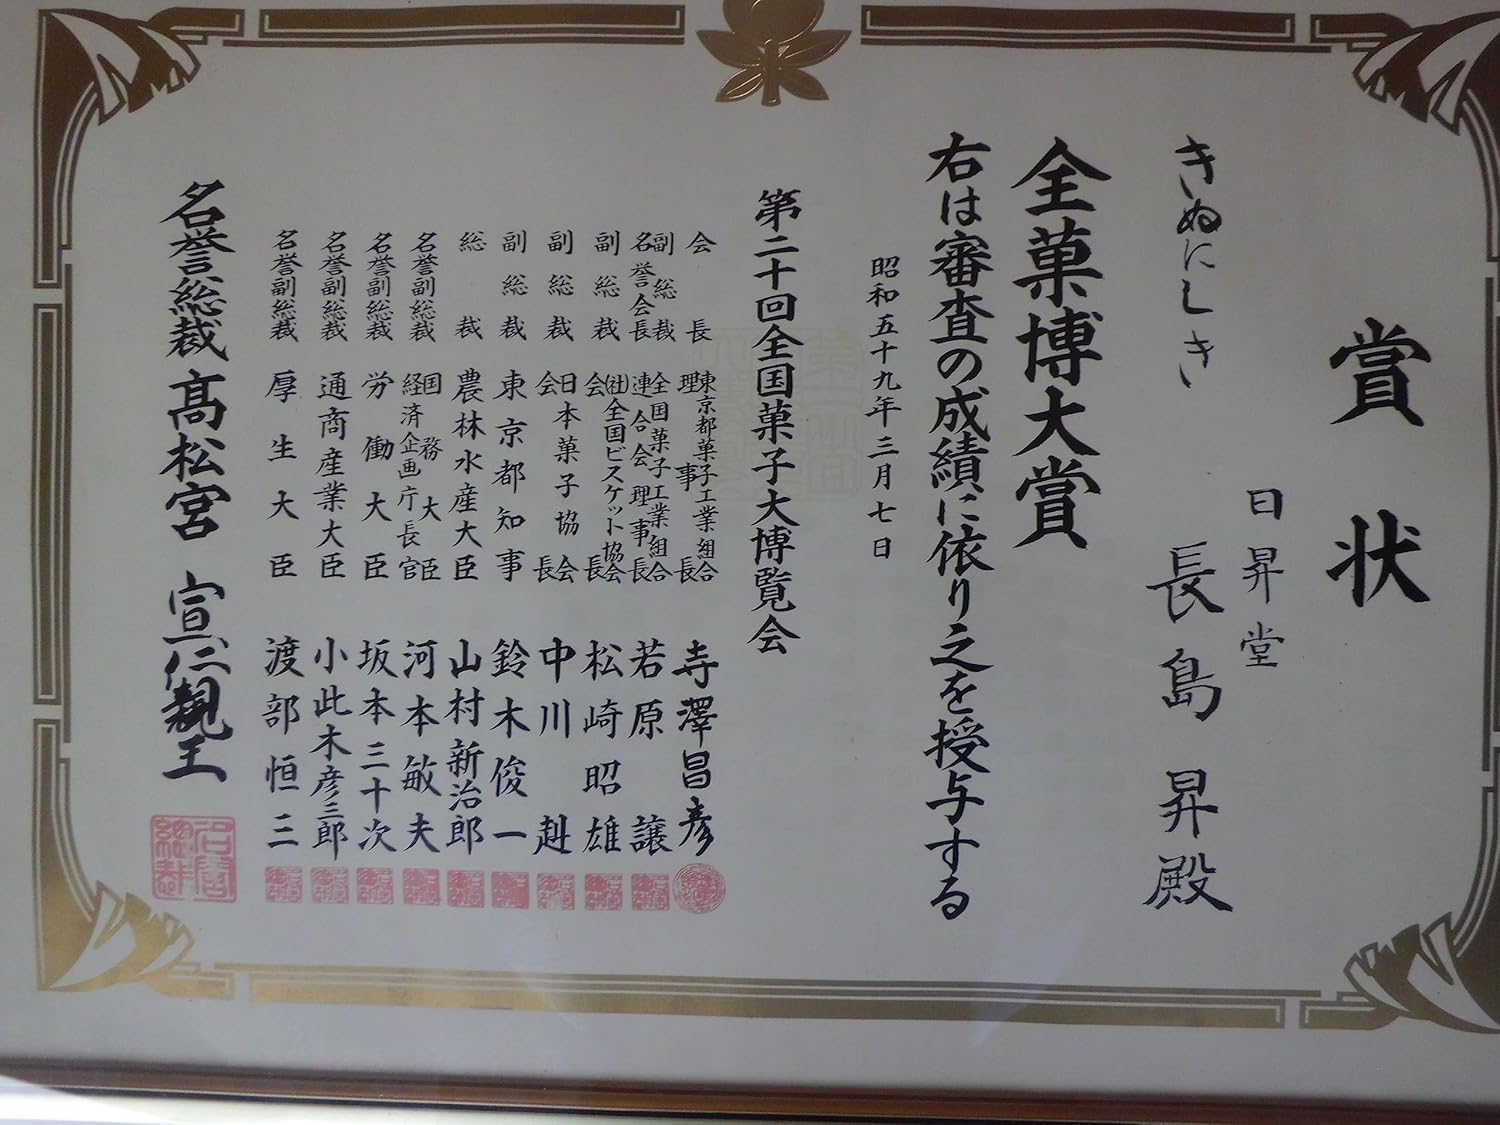 賞状
日昇堂
長島昇殿
きぬにしき
全菓博大賞
右は審査の成績に依り之を授与する
昭和五十九年三月七日
第二十回全国菓子大博覧会
会長 東京都菓子工業組合理事長 寺澤昌彦
副総裁 名誉会長 全国菓子工業組合連合会理事長 若原譲
副総裁 (社)全国ビスケット協会会長 松崎昭雄
副総裁 日本菓子協会会長 中川赳
副総裁 東京都知事 鈴木俊一
総裁 農林水産大臣 山村新治郎
名誉副総裁 国務大臣 経済企画庁長官 河本敏夫
名誉副総裁 労働大臣 坂本三十次
名誉副総裁 通商産業大臣 小此木彦三郎
名誉副総裁 厚生大臣 渡部恒三
名誉総裁 髙松宮 宣仁親王